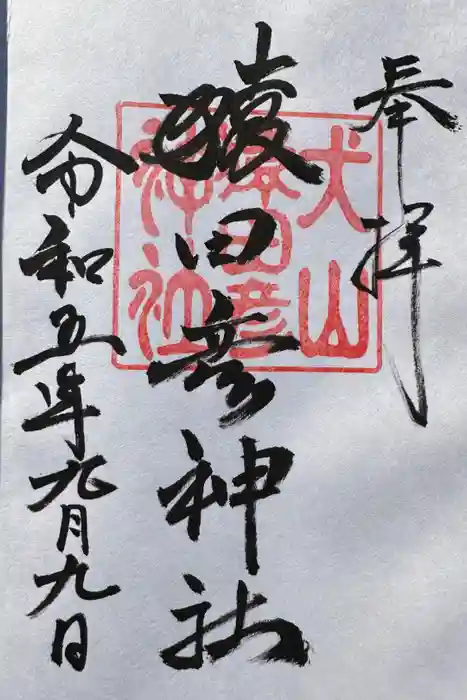 奉拝
犬山
猿田彦
神社
猿田彦神社
令和五年九月九日